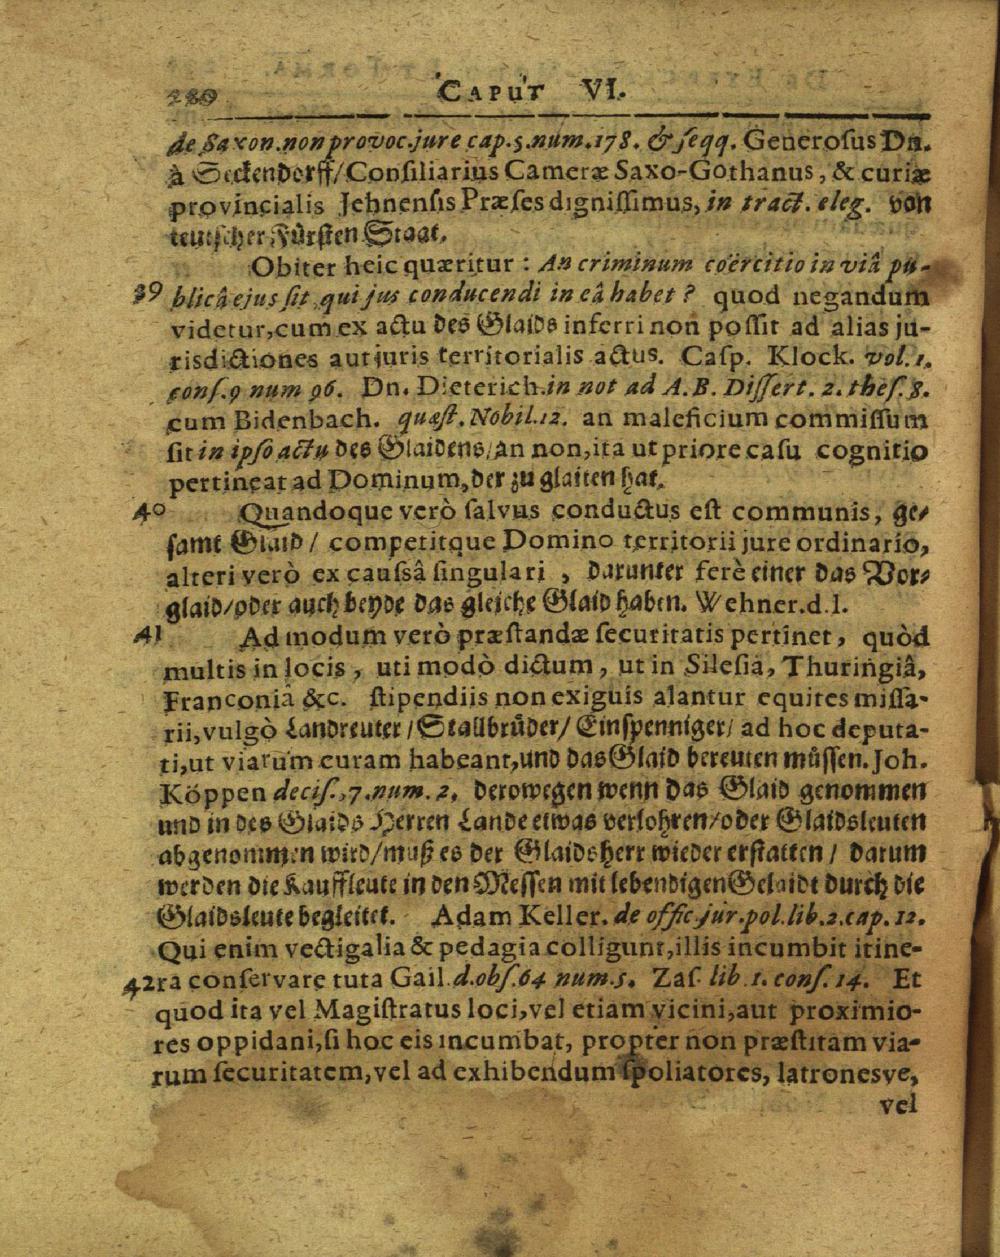 280 CAPUT VI.
de Saxon. non provoc. jure cap. 5. num. 178. & ſeqq. Generoſus Dn.
à Seckendorff/ Conſiliarius Cameræ Saxo-Gothanus, & curiæ
provincialis Jehnenſis Præſes digniſſimus, in tract. eleg. von
teutſcher Fürſten Staat.
Obiter heic quæritur: An criminum coërcitio in viâ pu-
39 blicâ ejus ſit qui jus conducendi in eâ habet? quod negandum
videtur, cum ex actu des Glaids inferri non poſſit ad alias ju-
risdictiones aut juris territorialis actus. Caſp. Klock. vol. 1.
conſ. 9 num 96. Dn. Dieterich. in not ad A. B. Diſſert. 2. theſ. 8.
cum Bidenbach. quæſt. Nobil. 12. an maleficium commiſſum
ſit in ipſo actu des Glaidens, an non, ita ut priore caſu cognitio
pertineat ad Dominum, der zu glaiten hat.
40 Quandoque verò ſalvus conductus eſt communis, ge-
ſamt Glaid / competitque Domino territorii jure ordinario,
alteri verò ex cauſsâ ſingulari, darunter ferè einer das Vor-
glaid/ oder auch beyde das gleiche Glaid haben. Wehner. d. l.
41 Ad modum verò præſtandæ ſecuritatis pertinet, quòd
multis in locis, uti modò dictum, ut in Sileſia, Thuringiâ,
Franconiâ &c. ſtipendiis non exiguis alantur equites miſſa-
rii, vulgò Landreuter / Stallbrüder / Einſpenniger / ad hoc deputa-
ti, ut viarum curam habeant, und das Glaid bereuten müſſen. Joh.
Köppen deciſ. 7. num. 2. derowegen wenn das Glaid genommen
und in des Glaids Herren Lande etwas verlohren/ oder Glaidsleuten
abgenommen wird/ muß es der Glaidsherr wieder erſtatten / darum
werden die Kauffleute in den Meſſen mit lebendigen Gelaidt durch die
Glaidsleute begleitet. Adam Keller. de offic. jur. pol. lib. 2. cap. 12.
Qui enim vectigalia & pedagia colligunt, illis incumbit itine-
42 ra conſervare tuta Gail. d. obſ. 64 num. 5. Zaſ. lib. 1. conſ. 14. Et
quod ita vel Magiſtratus loci, vel etiam vicini, aut proximio-
res oppidani, ſi hoc eis incumbat, propter non præſtitam via-
rum ſecuritatem, vel ad exhibendum ſpoliatores, latronesve,
vel